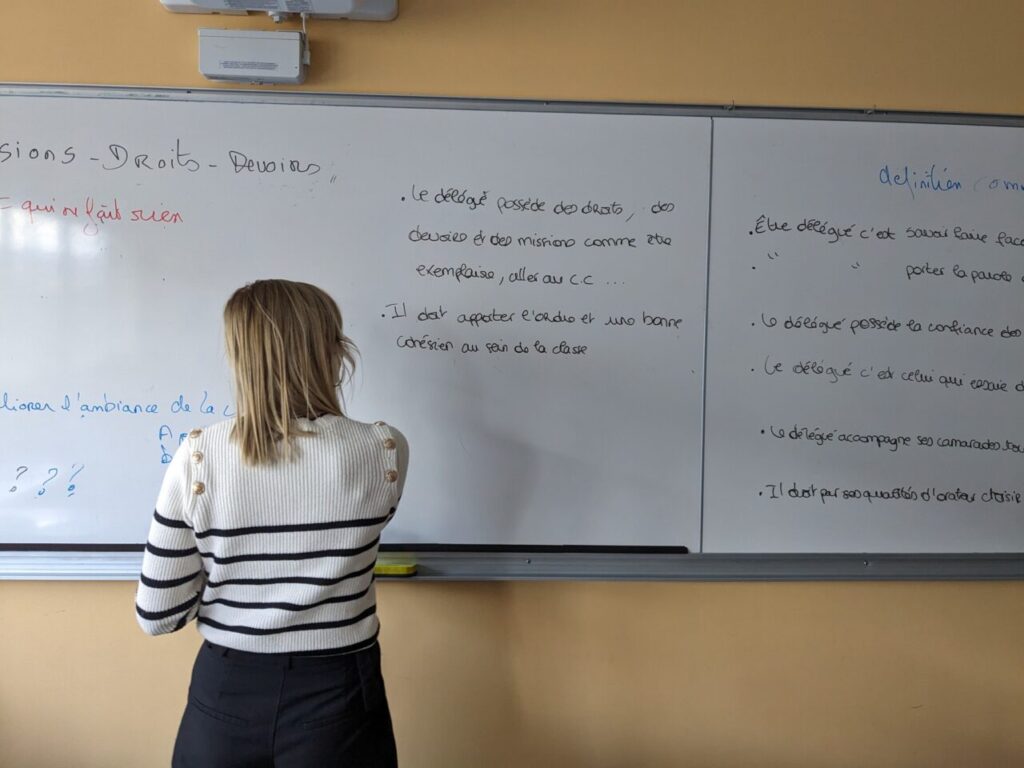 sions - Droits - Devoirs
= qui ne fait rien
liorer l'ambiance de la c
A
? ? ?
. Le délégué possède des droits, des
devoirs et des missions comme être
exemplaire, aller au C.C ...
. Il doit apporter l'ordre et une bonne
cohésion au sein de la classe
définition com
. Être délégué c'est savoir faire face
. " " porter la parole
. Le délégué possède la confiance des
. Le délégué c'est celui qui essaie d
. Le délégué accompagne ses camarades
. Il doit par ses qualités d'orateur choisie